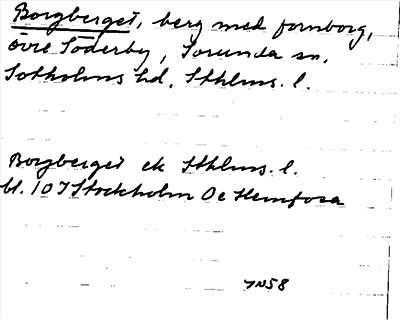 Borgberget, berg med fornborg,
övre Söderby, Sorunda sn,
Sotholms hd, Sthlms. l.
Borgberget ek Sthlms. l.
bl. 10 I Stockholm Oc Hemfosa